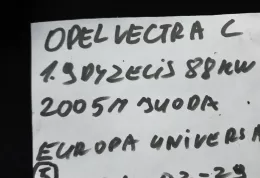 OPEL VECTRA C
1.9 DYZELIS 88KW
2005M JUODA
EUROPA UNIVERSA
5